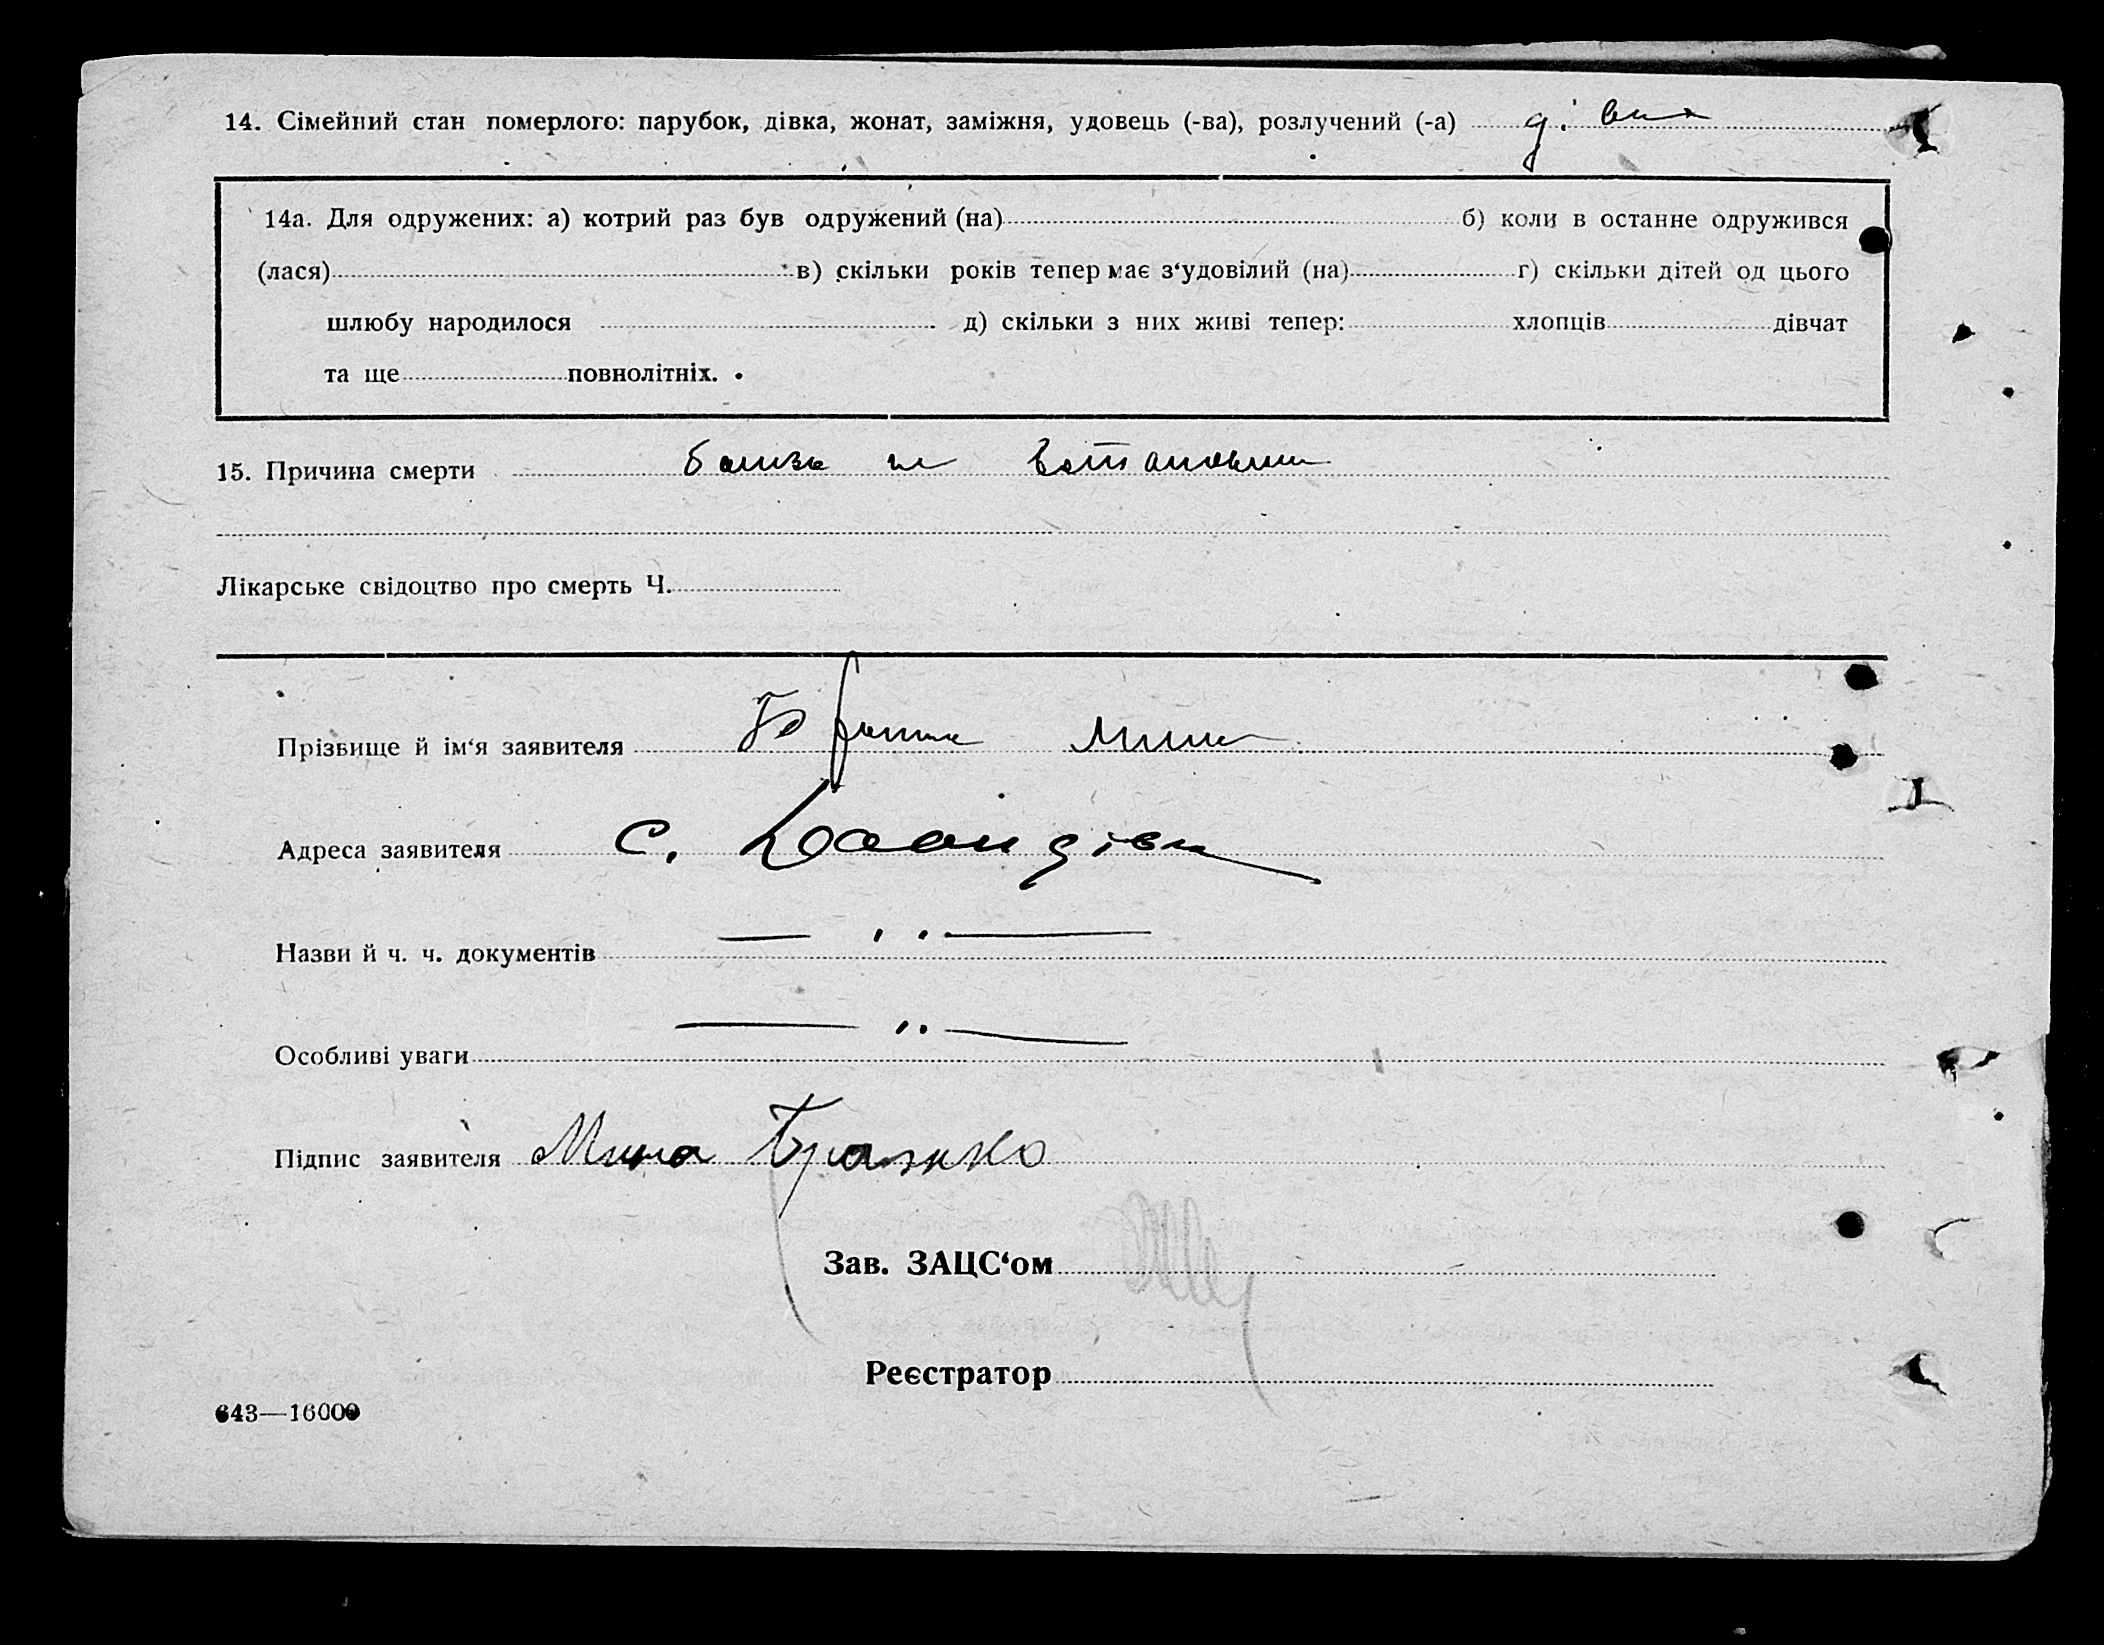 14. Сімейний стан померлого: парубок, дівка, жонат, заміжня, удовець (-ва), розлучений (-а) дівка
14а. Для одружених: а) котрий раз був одружений (на) б) коли в останнє одружився
(лася) в) скільки років тепер має з‘удовілий (на) г) скільки дітей од цього
шлюбу народилося д) скільки з них живі тепер: хлопців дівчат
та ще повнолітніх.
15. Причина смерти не
Лікарське свідоцтво про смерть Ч.
Прізвище й ім‘я заявителя Мина
Адреса заявителя с.
Назви й ч. ч. документів — „ —
Особливі уваги — „ —
Підпис заявителя Мина
Зав. ЗАЦС‘ом
Реєстратор
643—16000